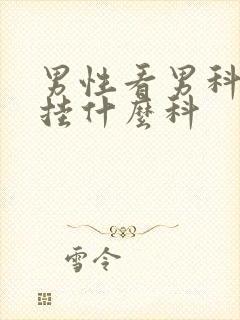 男性看男科
挂什麼科
雪令